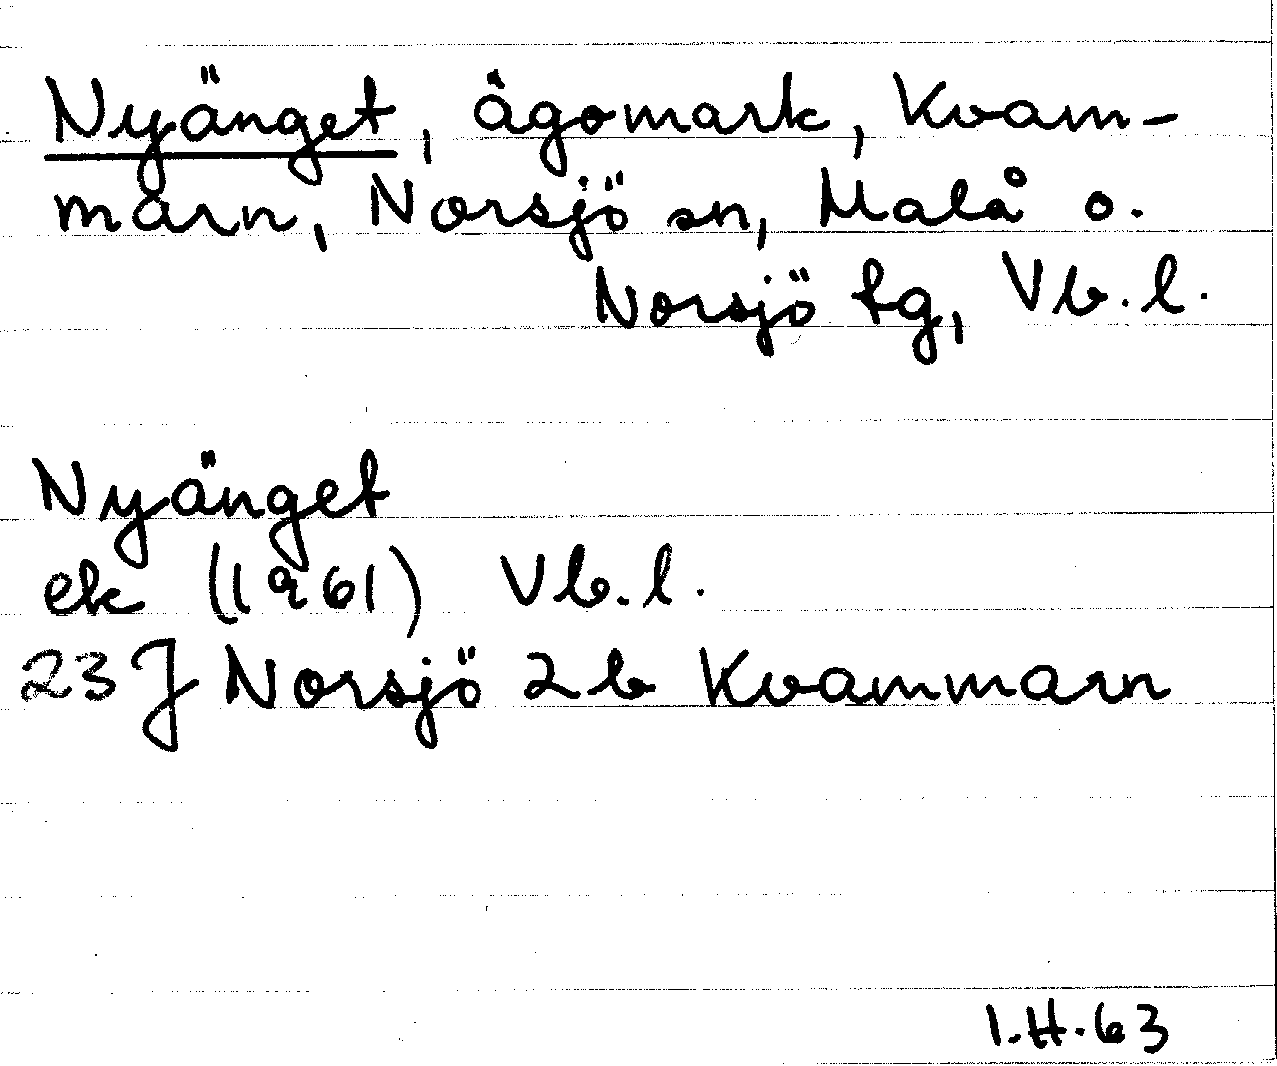 Nyänget, ägomark, Kvam-
marn, Norsjö sn, Malå o.
Norsjö tg, Vb. l.
Nyänget
ek (1961) Vb. l.
23 J Norsjö 2 b Kvammarn
I.H. 63